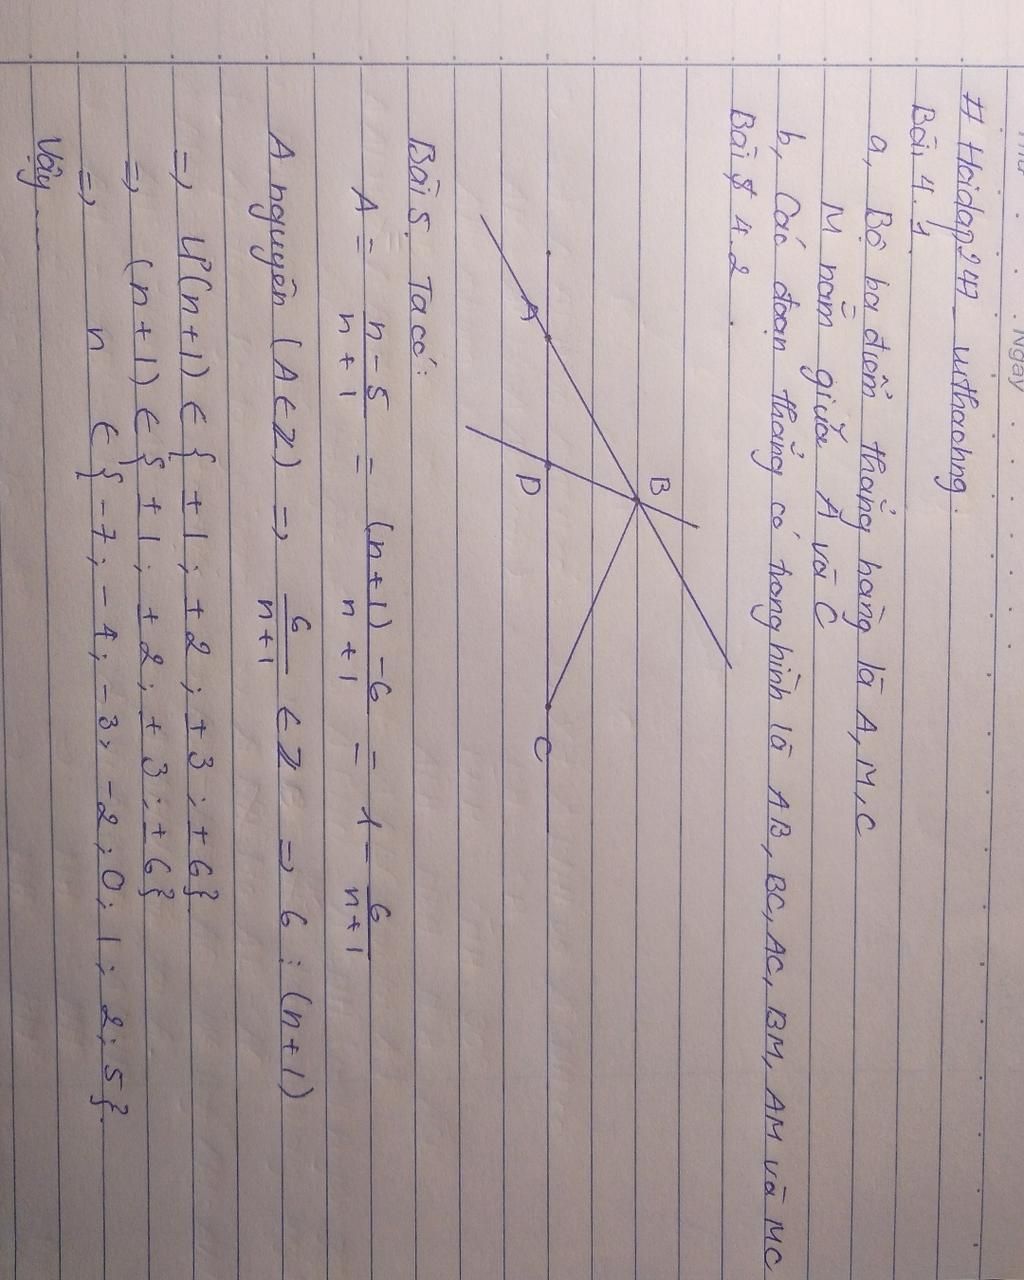 Ngày
# Hoidap247 - nthaohng.
Bài 4.1
a, Bộ ba điểm thẳng hàng là A, M, C
M nằm giữa A và C
b, Các đoạn thẳng có trong hình là AB, BC, AC, BM, AM và MC
Bài 4.2.
B
A D C
Bài 5. Ta có:
A = n-5 / n+1 = (n+1)-6 / n+1 = 1 - 6 / n+1
A nguyên (A ∈ Z) => 6 / n+1 ∈ Z => 6 ⋮ (n+1)
=> Ư(n+1) ∈ { ±1; ±2; ±3; ±6}
=> (n+1) ∈ { ±1; ±2; ±3; ±6}
=> n ∈ { -7; -4; -3; -2; 0; 1; 2; 5}.
Vậy ...